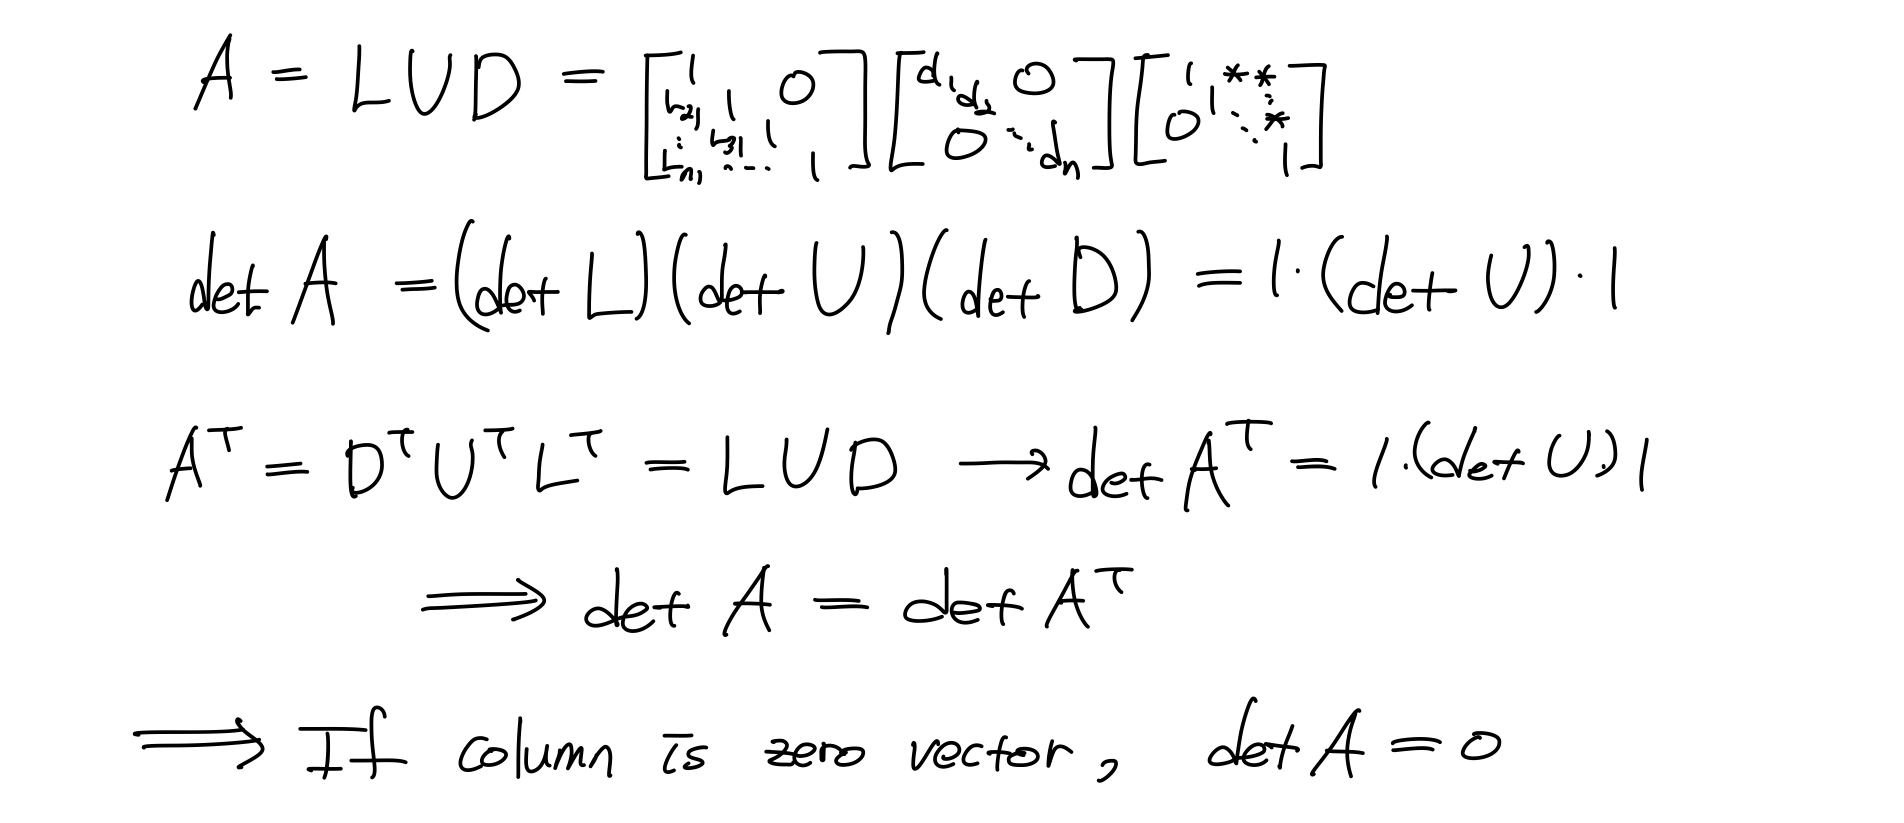 A = LUD = [1 0 L₂₁ 1 ⋮ L₃₁ 1 Lₙ₁ ... 1] [d₁ d₂ 0 0 ⋱ dₙ] [1 * * 0 1 ⋱ * 1]
det A = (det L)(det U)(det D) = 1·(det U)·1
Aᵀ = DᵀUᵀLᵀ = LUD → det Aᵀ = 1·(det U)·1
⟹ det A = det Aᵀ
⟹ If column is zero vector, det A = 0